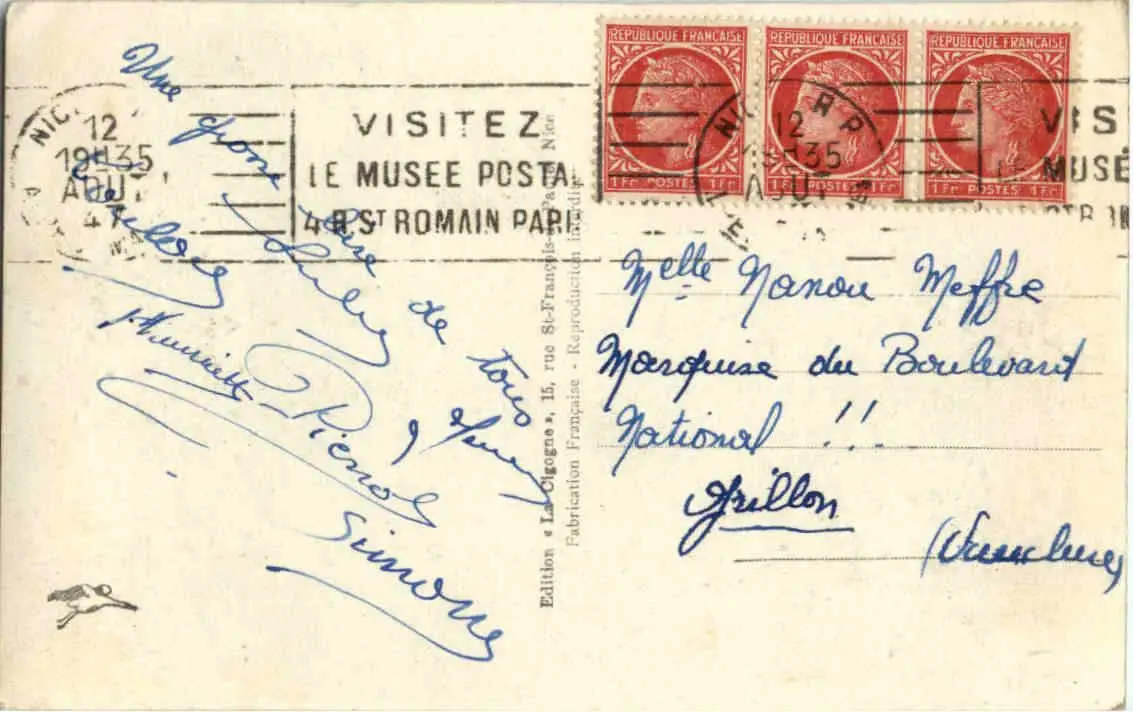 Une grosse bise de tous
Henriette
Pierrot
Simone
NIC
12
19H35
AOUT
47
VISITEZ
LE MUSEE POSTA
4 R. ST ROMAIN PARI
REPUBLIQUE FRANÇAISE
1 Fr POSTES 1 Fr
REPUBLIQUE FRANÇAISE
1 Fr POSTES 1 Fr
REPUBLIQUE FRANÇAISE
1 Fr POSTES 1 Fr
NIC R.P
12
19H35
AOUT
VIS
MUSÉ
Edition « La Cigogne », 15, rue St-François-de-Paule, Nice
Fabrication Française - Reproduction interdite
Melle Nanou Meffre
Marquise du Boulevard
National !!.
Grillon
(Vaucluse)